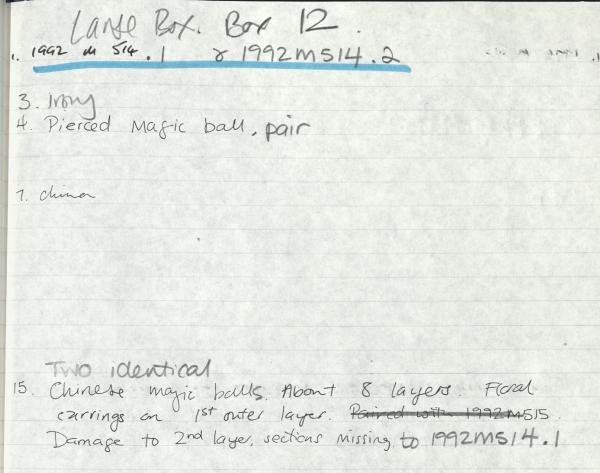 Large Box. Box 12.
1. 1992 m 514.1 & 1992M514.2
3. Ivory
4. Pierced Magic ball, pair
7. china
Two identical
15. Chinese magic balls. About 8 layers. Floral
carvings on 1st outer layer. Paired with 1992M515.
Damage to 2nd layer, sections missing to 1992M514.1